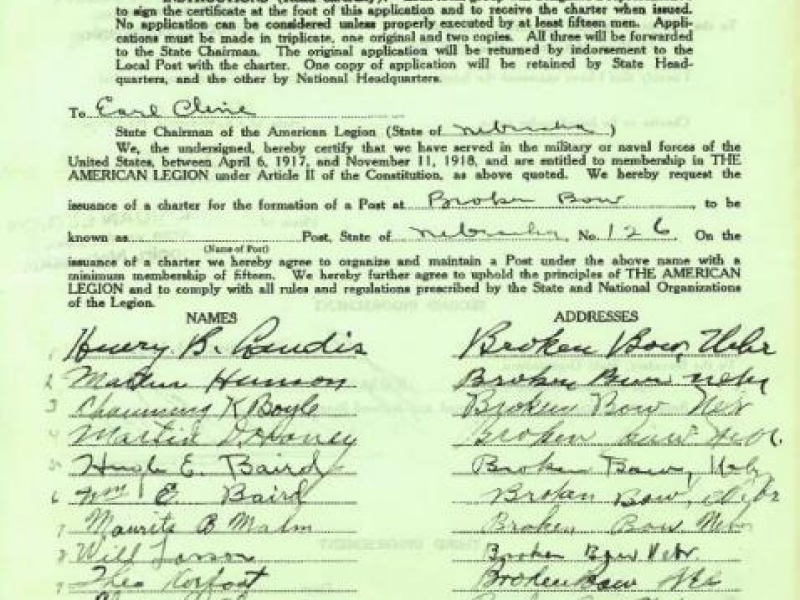 to sign the certificate at the foot of this application and to receive the charter when issued.
No application can be considered unless properly executed by at least fifteen men. Appli-
cations must be made in triplicate, one original and two copies. All three will be forwarded
to the State Chairman. The original application will be returned by indorsement to the
Local Post with the charter. One copy of application will be retained by State Head-
quarters, and the other by National Headquarters.
To Earl Cline
State Chairman of the American Legion (State of Nebraska)
We, the undersigned, hereby certify that we have served in the military or naval forces of the
United States, between April 6, 1917, and November 11, 1918, and are entitled to membership in THE
AMERICAN LEGION under Article II of the Constitution, as above quoted. We hereby request the
issuance of a charter for the formation of a Post at Broken Bow to be
known as Post, State of Nebraska, No. 126. On the
(Name of Post)
issuance of a charter we hereby agree to organize and maintain a Post under the above name with a
minimum membership of fifteen. We hereby further agree to uphold the principles of THE AMERICAN
LEGION and to comply with all rules and regulations prescribed by the State and National Organizations
of the Legion.
NAMES ADDRESSES
1 Henry B. Broken Bow, Nebr
2 Broken Bow Nebr
3 Channing K Boyle Broken Bow Neb
4 Martin Broken Bow Nebr.
5 Hugh E. Baird Broken Bow, Nebr
6 Wm E. Baird Broken Bow, Nebr
7 Maurits B Malm Broken Bow Nebr
8 Will Larson Broken Bow Nebr.
9 Theo Broken Bow Neb